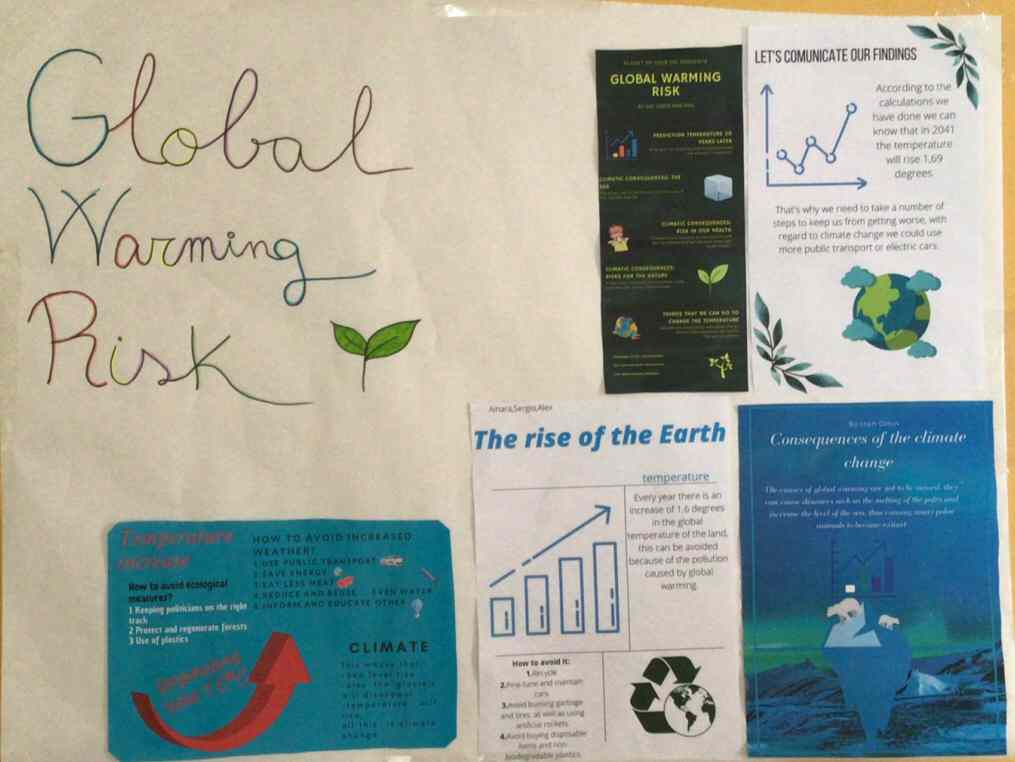 Global
Warming
Risk
GLOBAL WARMING
RISK
PREDICTION TEMPERATURE 20
YEARS LATER
CLIMATIC CONSEQUENCES: THE
CLIMATIC CONSEQUENCES:
RISK IN OUR HEALTH
CLIMATIC CONSEQUENCES:
RISKS FOR THE NATURE
THINGS THAT WE CAN DO TO
CHANGE THE TEMPERATURE
LET'S COMUNICATE OUR FINDINGS
According to the
calculations we
have done we can
know that in 2041
the temperature
will rise 1,69
degrees
That's why we need to take a number of
steps to keep us from getting worse, with
regard to climate change we could use
more public transport or electric cars.
Temperature
increase
How to avoid ecological
measures?
1 Keeping politicians on the right
track
2 Protect and regenerate forests
3 Use of plastics
HOW TO AVOID INCREASED
WEATHER?
1 USE PUBLIC TRANSPORT
2 SAVE ENERGY
3 EAT LESS MEAT
4 REDUCE AND REUSE ... EVEN WATER
5 INFORM AND EDUCATE OTHER
CLIMATE
This means that
will disappear
temperature will
rise,
all this is climate
change
Ainara,Sergio,Alex
The rise of the Earth
temperature
Every year there is an
increase of 1,6 degrees
in the global
temperature of the land,
this can be avoided
because of the pollution
caused by global
warming.
How to avoid it:
1.Recycle
2.Fine-tune and maintain
cars.
3.Avoid burning garbage
and tires, as well as using
artificial rockets.
4.Avoid buying disposable
items and non-
biodegradable plastics.
Consequences of the climate
change
The causes of global warming are not to be missed, they
can cause disasters such as the melting of the poles and
increase the level of the sea, thus causing many polar
animals to become extinct